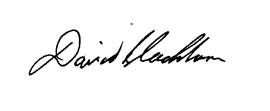 David Blackburn